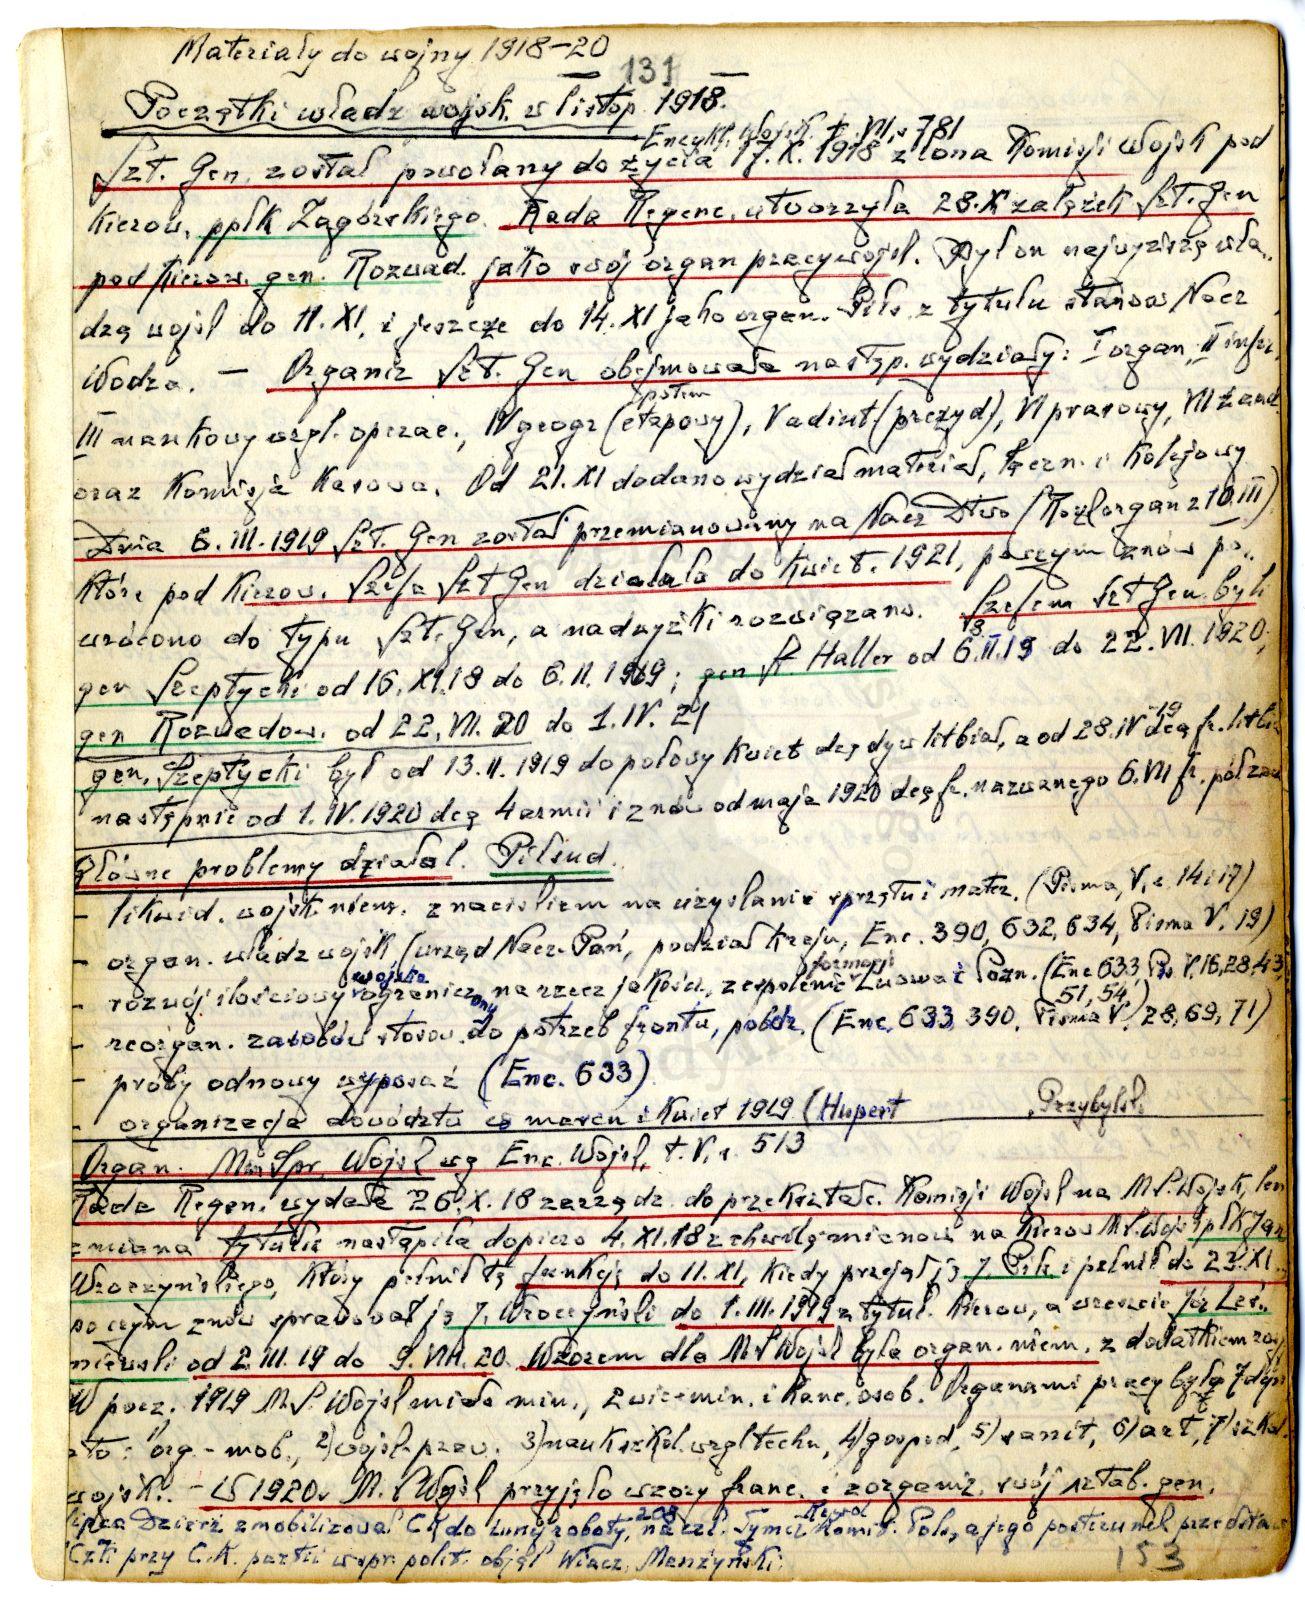 Materiały do wojny 1918–20
131
Początki władz wojsk. w listop. 1918.
Encykl. Wojsk. t. VII, s 781
Szt. Gen. został powołany do życia 17.X.1918 z łona Komisji Wojsk pod
kierow. ppłk Zagórskiego. Rada Regenc. utworzyła 28.X zalążek Szt. Gen
pod kierow. gen. Rozwad. jako swój organ pracy wojsk. Był on najwyższą wła-
dzą wojsk do 11.XI, i jeszcze do 14.XI jako organ. Piłs. z tytułu stanow Nacz
Wodza. – Organiz Szt. Gen obejmowała następ. wydziały: I organ, II infor,
III naukowy wzgl. operac., IV geogr (potem etapowy), V adiut (prezyd), VI prasowy, VII żand.
oraz Komisja Kasowa. Od 21.XI dodano wydział materiał, łączn. i kolejowy
Dnia 6.III.1919 Szt. Gen został przemianowany na Nacz Dtwo (Rozk organ z 10.III)
które pod kierow. Szefa Szt Gen działało do kwiet. 1921, poczym znów po-
wrócono do typu Szt. Gen, a nadwyżki rozwiązano. Szefem Szt Gen. byli
gen Szeptycki od 16.XI.18 do 6.II.1919; gen St. Haller od 6.II.19 do 22.VII.1920;
gen Rozwadow. od 22.VII.20 do 1.IV.21
gen. Szeptycki był od 13.II.1919 do połowy kwiet dcą dyw lit biał, a od 28.IV 19 dcą fr. lit bia
następnie od 1.IV.1920 dcą 4 armii i znów od maja 1920 dcą fr. nazwanego 6.VII fr. półzach
Główne problemy działal. Piłsud.
– likwid. wojsk. niem. z naciskiem na uzyskanie sprzętu i mater. (Pisma, V, s. 14 i 17)
– organ. władz wojsk (urząd Nacz. Pań, podział kraju, Enc. 390, 632, 634, Pisma V. 19)
– rozwój ilościowy wojska ograniczony na rzecz jakości, zespolenie formacji Lwowa i Pozn. (Enc 633, Ps V. 16, 28, 43, 51, 54,)
– reorgan. zasobów stosow. do potrzeb frontu, pobór. (Enc. 633, 390, Pisma V. 28, 69, 71)
– próby odnowy wyposaż (Enc. 633)
– organizacja dowództw w marcu i kwiet 1919 (Hupert Przybyls.
Organ. Min Spr. Wojsk wg Enc. Wojsk, t. V. s. 513
Rada Regen. wydała 26.X.18 zarządz. do przekształc. Komisji Wojsk na M.S. Wojsk, lecz
zmiana tytułu nastąpiła dopiero 4.XI.18 z chwilą mianow na kierow M.S. Wojsk płk Jan
Wroczyńskiego, który pełnił tę funkcję do 11.XI, kiedy przejął ją J. Piłs i pełnił do 23.XI.
poczym znów sprawował ją J. Wroczyński do 1.III.1919 z tytuł. kierow, a wreszcie Józ Leś-
niewski od 2.III.19 do 9.VIII.20. Wzorem dla M S Wojsk była organ. niem. z dodatkiem rosyj
W pocz. 1919 M.S. Wojsk miało min., 2 wicemin. i kanc. osob. Organami pracy było 7 dep
a to: 1) org.-mob., 2) wojsk-praw. 3) nauk szkol. wzgl techn, 4) gospod, 5) sanit, 6) art, 7) szkol.
wojsk. – W 1920 M. S Wojsk przyjęło wzory franc. i zorganiz. swój sztab. gen.
Lipca Dzierż zmobilizował CK do tej roboty, na czł. Tymcz Rewol Komit. Pols, a jego posterunek przedstaw
Czk przy C.K. partii w spr. polit. objął Wiacz. Menżyński.
153